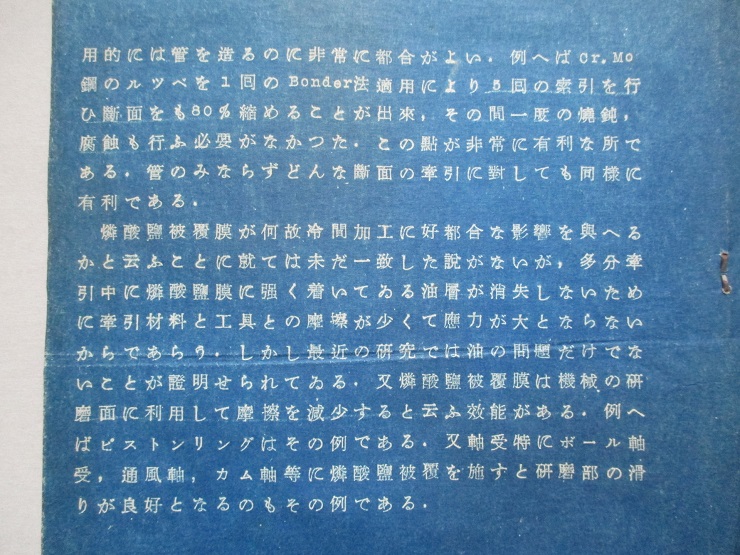 用的には管を造るのに非常に都合がよい．例へばCr.Mo
鋼のルツペを1回のBonder法適用により5回の索引を行
ひ斷面をも80%縮めることが出來，その間一度の燒鈍，
腐蝕も行ふ必要がなかつた．この點が非常に有利な所で
ある．管のみならずどんな斷面の牽引に對しても同樣に
有利である．
燐酸鹽被覆膜が何故冷間加工に好都合な影響を與へる
かと云ふことに就ては未だ一致した說がないが，多分牽
引中に燐酸鹽膜に强く着いてゐる油層が消失しないため
に牽引材料と工具との摩擦が少くて應力が大とならない
からであらう．しかし最近の研究では油の問題だけでな
いことが證明せられてゐる．又燐酸鹽被覆膜は機械の研
磨面に利用して摩擦を減少すると云ふ效能がある．例へ
ばピストンリングはその例である．又軸受特にボール軸
受，通風軸，カム軸等に燐酸鹽被覆を施すと研磨部の滑
りが良好となるのもその例である．